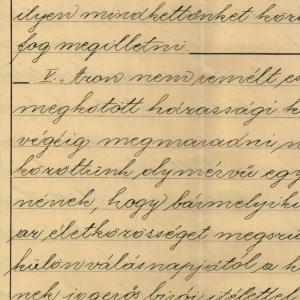 ilyen mindkettőnket köz
fog megilletni.
V. Azon nem remélt es
megkötött házassági k
végéig megmaradni n
közöttünk olymérvű egy
nének, hogy bármelyik
az életközösséget megszü
különválás napjától a h
nek jogerős bírói ítélettel